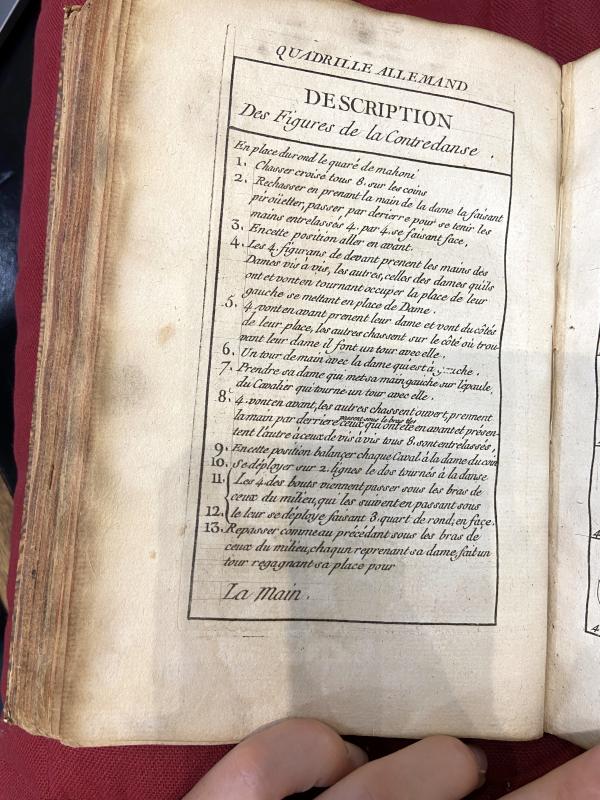 QUADRILLE ALLEMAND
DESCRIPTION
Des Figures de la Contredanse .
En place du rond le quaré de mahoni
1. Chasser croisé tous 8. sur les coins
2. Rechasser en prenant la main de la dame la faisant
piroüetter, passer par derierre pour se tenir les
mains entrelassés 4. par 4. se faisant face,
3. En cette position aller en avant.
4. Les 4. figurans de devant prenent les mains des
Dames vis à vis, les autres, celles des dames qu'ils
ont et vont en tournant occuper la place de leur
gauche se mettant en place de Dame .
5. 4. vont en avant prenent leur dame et vont du côtés
de leur place, les autres chassent sur le côté où trou-
vant leur dame il font un tour avec elle .
6. Un tour de main avec la dame qui est à gauche .
7. Prendre sa dame qui met sa main gauche sur l'epaule,
du Cavalier qui tourne un tour avec elle .
8. 4. vont en avant, les autres chassent ouvert, prennent
passent sous le bras des
la main par derriere ceux qui ont été en avant et présen-
tent l'autre à ceux de vis à vis tous 8. sont entrelassés,
9. En cette position balançer chaque Caval. à la dame du coin
10. Se déployer sur 2. lignes le dos tournés à la danse
11. Les 4. des bouts viennent passer sous les bras de
ceux du milieu, qui les suivent en passant sous
12. le leur se déploye faisant 3. quart de rond, en face.
13. Repasser comme au précédant sous les bras de
ceux du milieu, chaqun reprenant sa dame, fait un
tour regagnant sa place pour
La main .